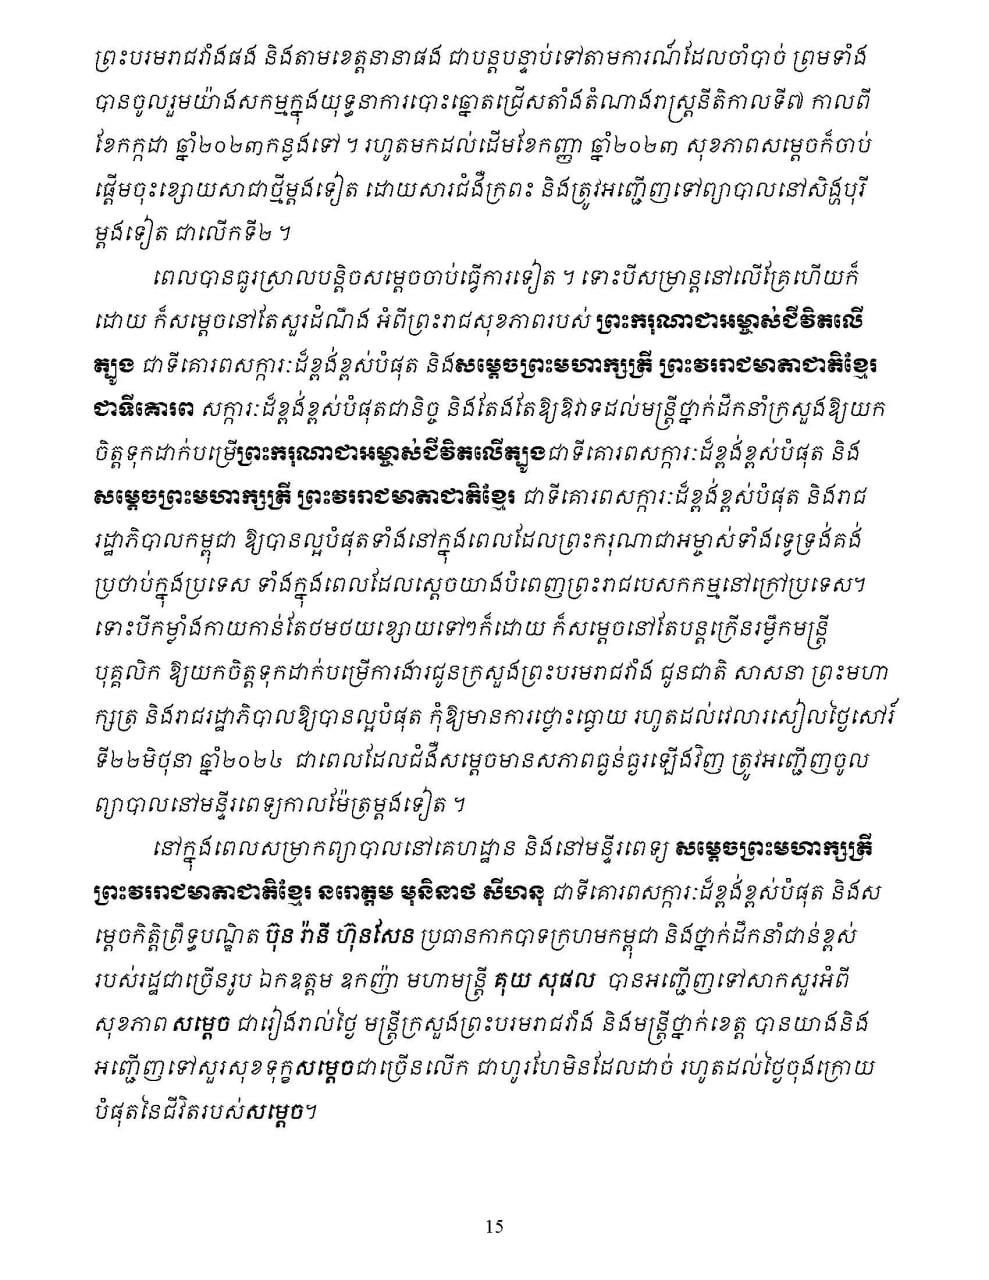 ព្រះបរមរាជវាំងផង និងតាមខេត្តនានាផង ជាបន្តបន្ទាប់ទៅតាមការណ៍ដែលចាំបាច់ ព្រមទាំង
បានចូលរួមយ៉ាងសកម្មក្នុងយុទ្ធនាការបោះឆ្នោតជ្រើសតាំងតំណាងរាស្ត្រនីតិកាលទី៧ កាលពី
ខែកក្កដា ឆ្នាំ២០២៣កន្លងទៅ ។ រហូតមកដល់ដើមខែកញ្ញា ឆ្នាំ២០២៣ សុខភាពសម្តេចក៏ចាប់
ផ្តើមចុះខ្សោយសាជាថ្មីម្តងទៀត ដោយសារជំងឺក្រពះ និងត្រូវអញ្ជើញទៅព្យាបាលនៅសិង្ហបុរី
ម្តងទៀត ជាលើកទី២ ។
ពេលបានធូរស្រាលបន្តិចសម្តេចចាប់ធ្វើការទៀត ។ ទោះបីសម្រាន្តនៅលើគ្រែហើយក៏
ដោយ ក៏សម្តេចនៅតែសួរដំណឹង អំពីព្រះរាជសុខភាពរបស់ ព្រះករុណាជាអម្ចាស់ជីវិតលើ
ត្បូង ជាទីគោរពសក្ការៈដ៏ខ្ពង់ខ្ពស់បំផុត និងសម្តេចព្រះមហាក្សត្រី ព្រះវររាជមាតាជាតិខ្មែរ
ជាទីគោរព សក្ការៈដ៏ខ្ពង់ខ្ពស់បំផុតជានិច្ច និងតែងតែឱ្យឱវាទដល់មន្ត្រីថ្នាក់ដឹកនាំក្រសួងឱ្យយក
ចិត្តទុកដាក់បម្រើព្រះករុណាជាអម្ចាស់ជីវិតលើត្បូងជាទីគោរពសក្ការៈដ៏ខ្ពង់ខ្ពស់បំផុត និង
សម្តេចព្រះមហាក្សត្រី ព្រះវររាជមាតាជាតិខ្មែរ ជាទីគោរពសក្ការៈដ៏ខ្ពង់ខ្ពស់បំផុត និងរាជ
រដ្ឋាភិបាលកម្ពុជា ឱ្យបានល្អបំផុតទាំងនៅក្នុងពេលដែលព្រះករុណាជាអម្ចាស់ទាំងទ្វេទ្រង់គង់
ប្រថាប់ក្នុងប្រទេស ទាំងក្នុងពេលដែលស្តេចយាងបំពេញព្រះរាជបេសកកម្មនៅក្រៅប្រទេស។
ទោះបីកម្លាំងកាយកាន់តែថមថយខ្សោយទៅៗក៏ដោយ ក៏សម្តេចនៅតែបន្តក្រើនរម្លឹកមន្ត្រី
បុគ្គលិក ឱ្យយកចិត្តទុកដាក់បម្រើការងារជូនក្រសួងព្រះបរមរាជវាំង ជូនជាតិ សាសនា ព្រះមហា
ក្សត្រ និងរាជរដ្ឋាភិបាលឱ្យបានល្អបំផុត កុំឱ្យមានការថ្លោះធ្លោយ រហូតដល់វេលារសៀលថ្ងៃសៅរ៍
ទី២២មិថុនា ឆ្នាំ២០២៤ ជាពេលដែលជំងឺសម្តេចមានសភាពធ្ងន់ធ្ងរឡើងវិញ ត្រូវអញ្ជើញចូល
ព្យាបាលនៅមន្ទីរពេទ្យកាល់ម៉ែត្រម្តងទៀត ។
នៅក្នុងពេលសម្រាកព្យាបាលនៅគេហដ្ឋាន និងនៅមន្ទីរពេទ្យ សម្តេចព្រះមហាក្សត្រី
ព្រះវររាជមាតាជាតិខ្មែរ នរោត្តម មុនិនាថ សីហនុ ជាទីគោរពសក្ការៈដ៏ខ្ពង់ខ្ពស់បំផុត និងស
ម្តេចកិត្តិព្រឹទ្ធបណ្ឌិត ប៊ុន រ៉ានី ហ៊ុនសែន ប្រធានកាកបាទក្រហមកម្ពុជា និងថ្នាក់ដឹកនាំជាន់ខ្ពស់
របស់រដ្ឋជាច្រើនរូប ឯកឧត្តម ឧកញ៉ា មហាមន្ត្រី គុយ សុផល បានអញ្ជើញទៅសាកសួរអំពី
សុខភាព សម្តេច ជារៀងរាល់ថ្ងៃ មន្ត្រីក្រសួងព្រះបរមរាជវាំង និងមន្ត្រីថ្នាក់ខេត្ត បានយាងនិង
អញ្ជើញទៅសួរសុខទុក្ខសម្តេចជាច្រើនលើក ជាហូរហែមិនដែលដាច់ រហូតដល់ថ្ងៃចុងក្រោយ
បំផុតនៃជីវិតរបស់សម្តេច។
15